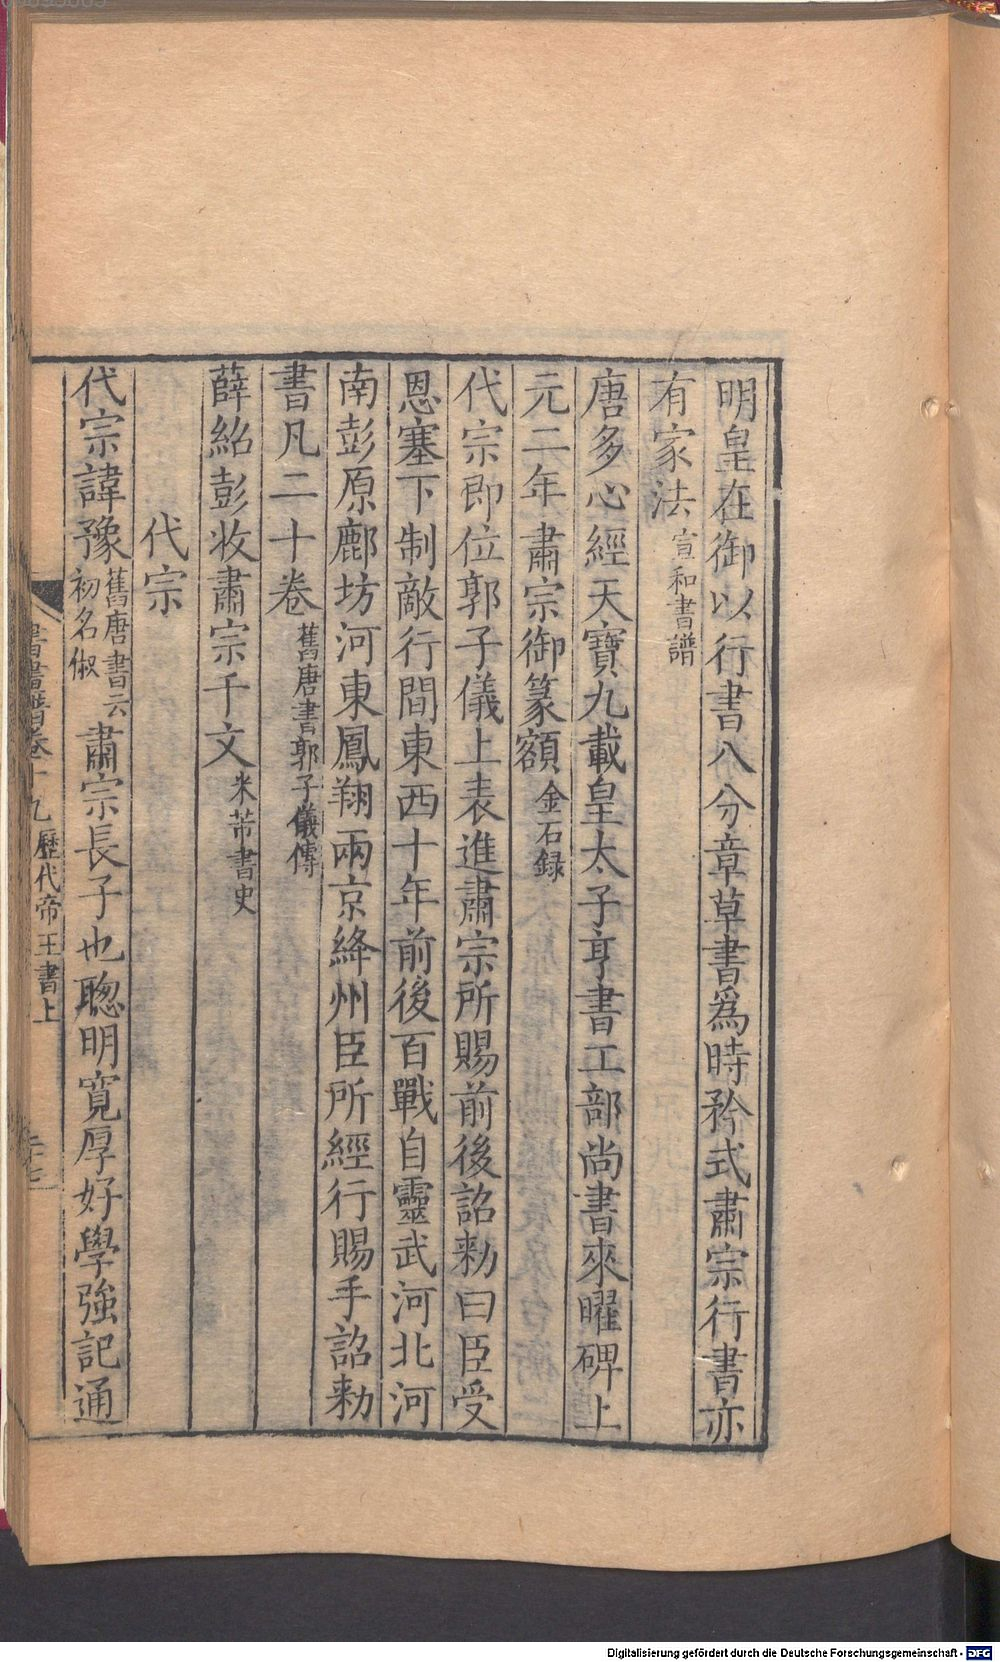 明皇在御以行書八分章草書爲時矜式肅宗行書亦
有家法宣和書譜
唐多心經天寶九載皇太子亨書工部尚書來曜碑上
元二年肅宗御篆額金石録
代宗即位郭子儀上表進肅宗所賜前後詔勑曰臣受
恩塞下制敵行間東西十年前後百戰自靈武河北河
南彭原鄜坊河東鳳翔兩京絳州臣所經行賜手詔勑
書凡二十卷舊唐書郭子儀傳
薛紹彭收肅宗千文米芾書史
代宗
代宗諱豫舊唐書云初名俶肅宗長子也聰明寬厚好學強記通
書畫譜卷十九 歷代帝王書上 二十七
Digitalisierung gefördert durch die Deutsche Forschungsgemeinschaft - DFG